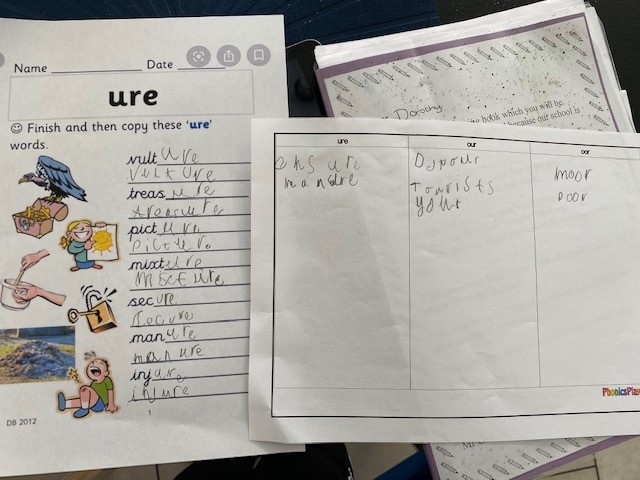 Name Date
ure
☺ Finish and then copy these 'ure'
words.
vulture
vulture
treasure
picture
picture
mixture
secure
secure
manure
manure
injure
injure
DB 2012
Dorothy
book which you will be
because our school is
ure our oor
manure
Tourists
moor
poor
PhonicsPlay